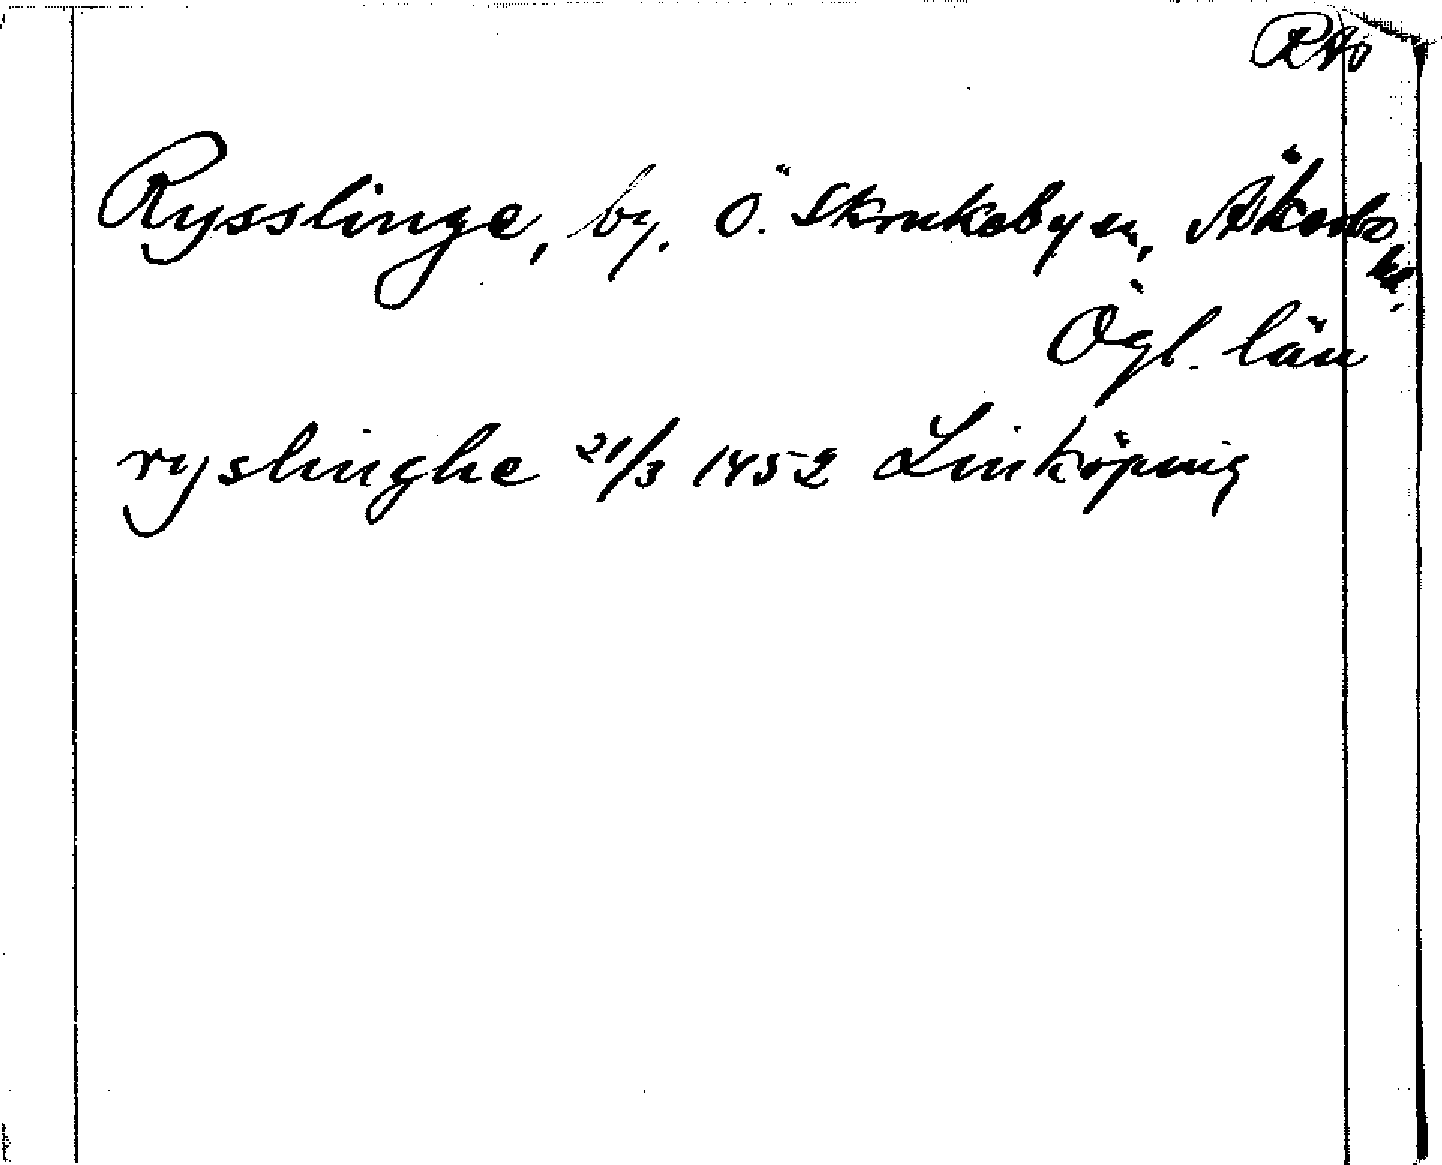 RAO
Rysslinge, by. Ö. Skrukeby sn, Åkerbo hd.
Ögl. län
ryslinghe 21/3 1452 Linköping